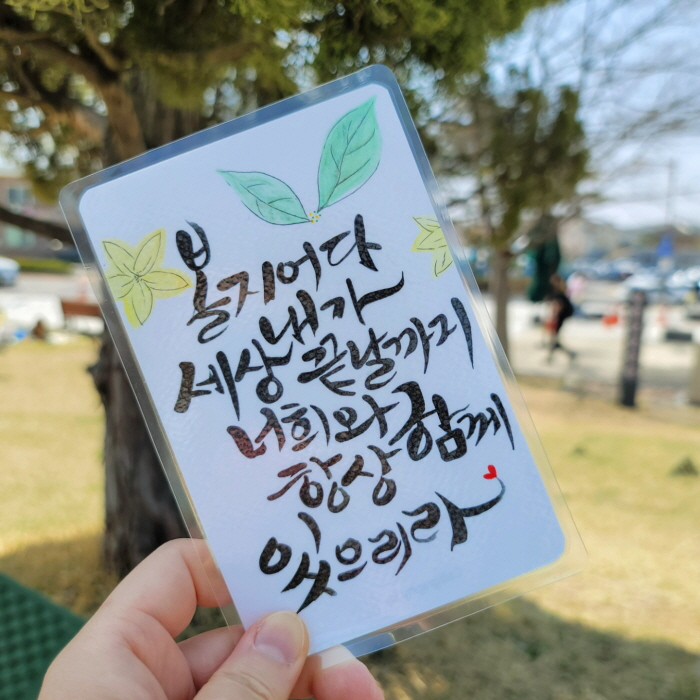 볼지어다
내가
세상 끝날까지
너희와 함께
항상
있으리라